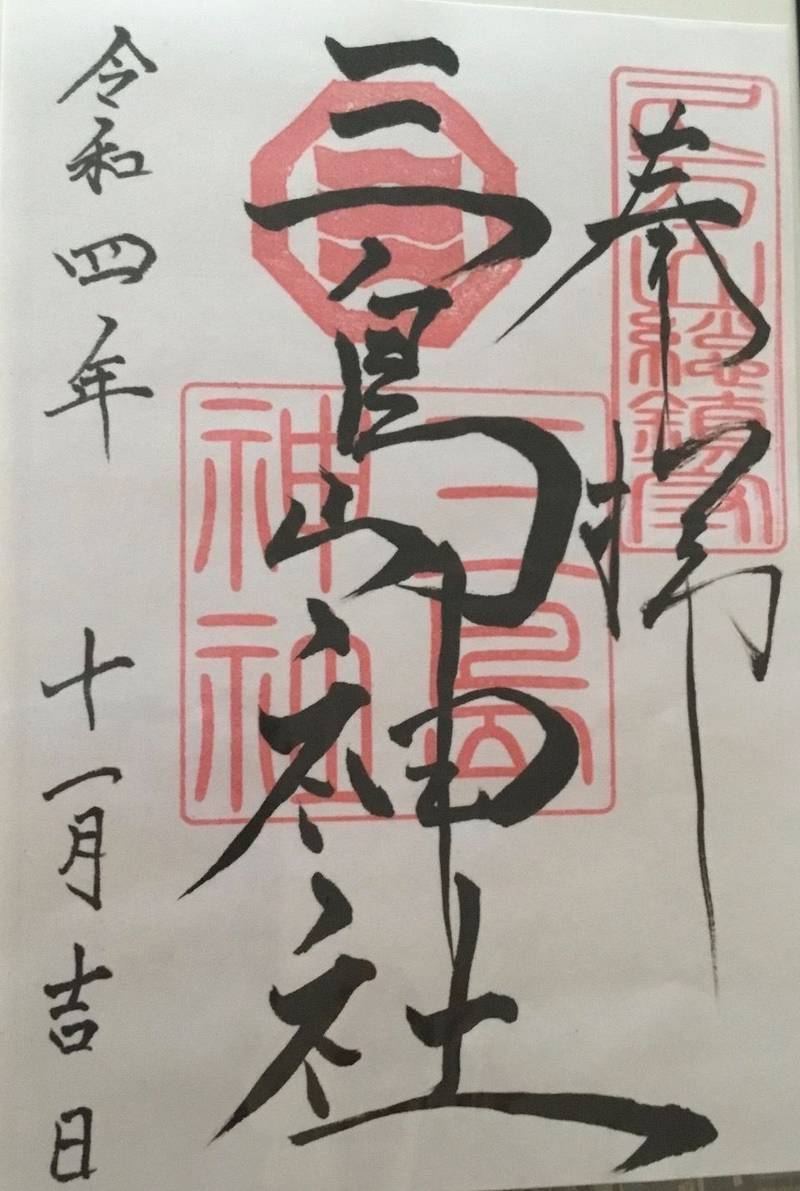 奉拝
總鎮守
三島神社
三島
神社
令和四年 十一月吉日